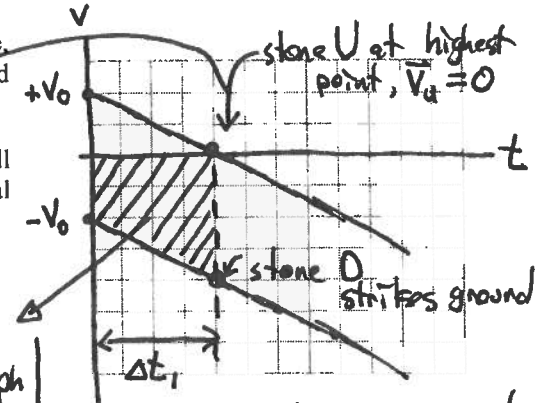 V
stone U at highest
point, V̄u = 0
+V₀
t
-V₀
stone D
strikes ground
Δ
Δt₁
ph